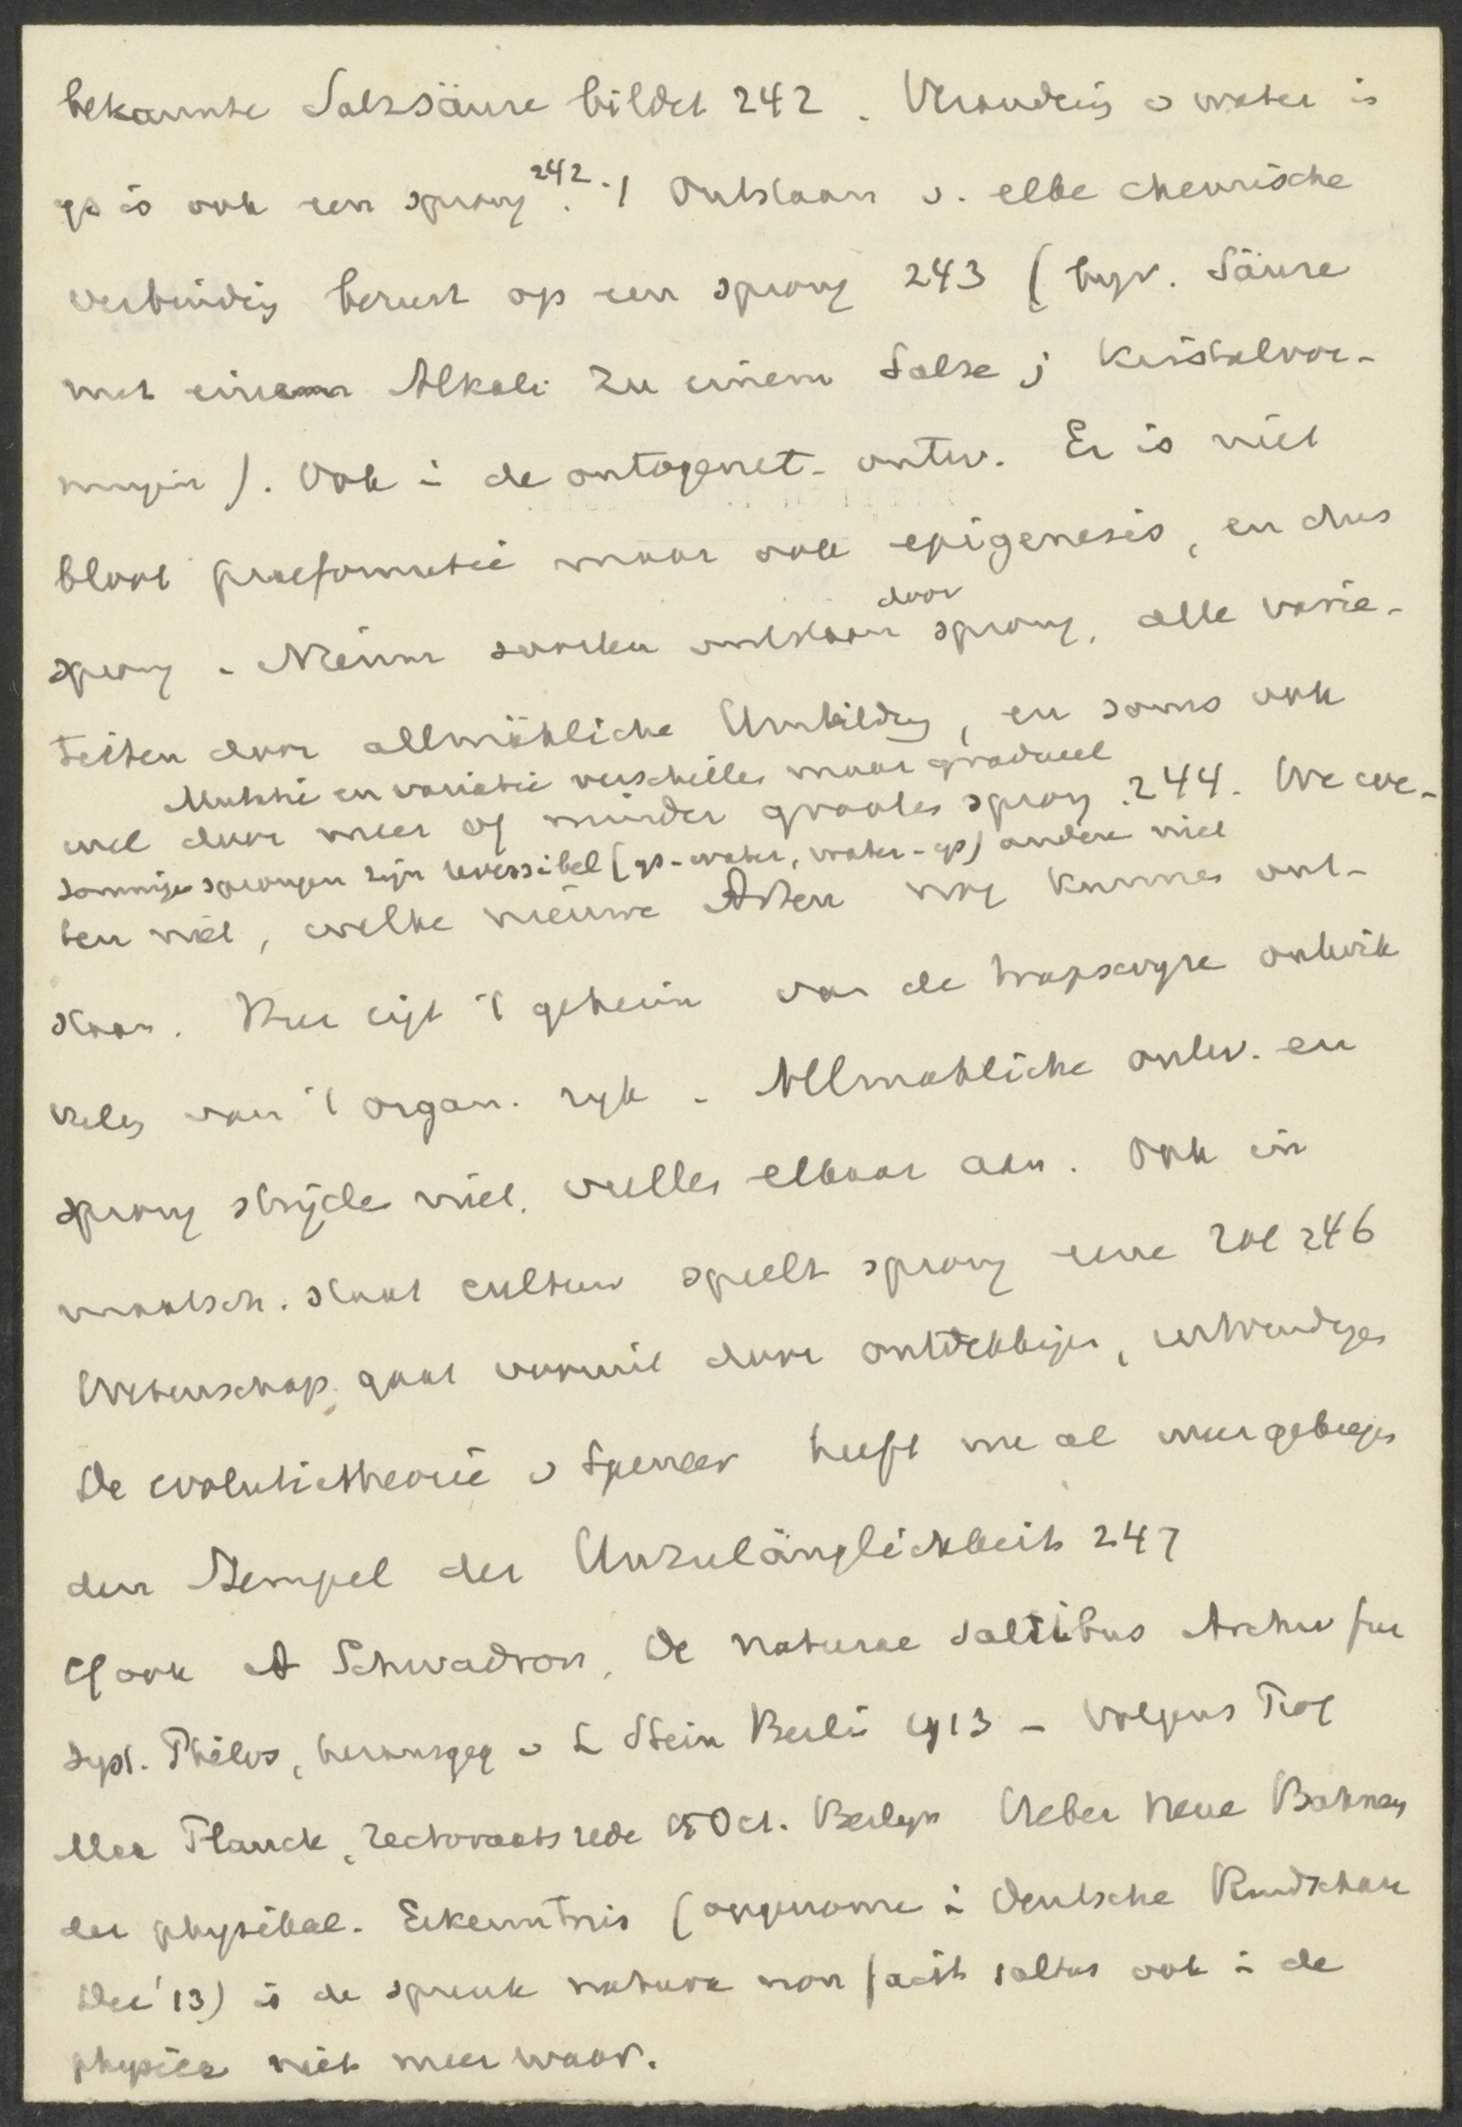 bekannte Salzsäure bildet 242. Verandring v water is
ys is ook een sprong 242. ! Ontstaan v. elke chemische
verbinding berust op een sprong 243 (byv. Säure
met einem Alkali zu einem Salze; kristalvor-
mingen). Ook i de ontogenet. ontw. Er is niet
bloot praeformatie maar ook epigenesis, en dus
sprong. Nieuwe soorten ontstaan door sprong, alle varie-
teiten door allmähliche Umbildung, en soms ook
Mutatie en variatie verschillen maar gradueel
wel door meer of minder groote sprong. 244. We we-
Sommige sprongen zijn reversibel (ys-water, water-ys) andere niet
ten niet, welke nieuwe Arten nog kunnen ont-
staan. Hier ligt 't geheim van de trapswyze ontwik
keling van 't organ. ryk. Allmähliche ontw. en
sprong stryden niet, vullen elkaar aan. Ook in
maatsch. staat cultuur speelt sprong eene rol 246
Wetenschap gaat vooruit door ontdekkingen, uitvindingen
De evolutietheorie v Spencer heeft nu al meegekregen
den Stempel der Unzulänglichkeit 247
Cf ook A Schwadron, De naturae saltibus Archiv fur
syst. Philos, herausgeg v L Stein Berlin 1913 - Volgens Prof
Max Planck, rectoraatsrede 15 Oct. Berlyn Ueber neue Bahnen
der physikal. Erkenntnis (opgenomen i Deutsche Rundschau
Dec '13) is de spreuk natura non facit saltus ook i de
physica niet meer waar.